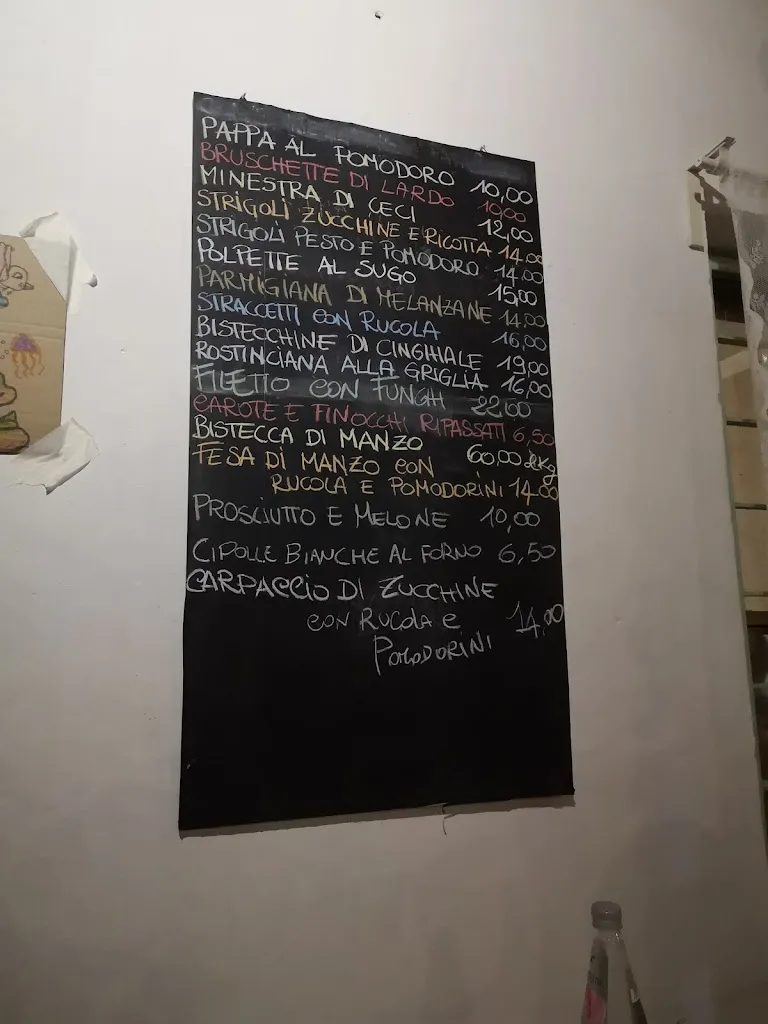 PAPPA AL POMODORO 10,00
BRUSCHETTE DI LARDO 10,00
MINESTRA DI CECI 12,00
STRIGOLI ZUCCHINE E RICOTTA 14.00
STRIGOLI PESTO E POMODORO 14,00
POLPETTE AL SUGO 15,00
PARMIGIANA DI MELANZANE 14,00
STRACCETTI CON RUCOLA 16,00
BISTECCHINE DI CINGHIALE 19,00
ROSTINCIANA ALLA GRIGLIA 16,00
FILETTO CON FUNGHI 22,00
CAROTE E FINOCCHI RIPASSATI 6,50
BISTECCA DI MANZO 60,00 al Kg
FESA DI MANZO CON
RUCOLA E POMODORINI 14.00
PROSCIUTTO E MELONE 10,00
CIPOLLE BIANCHE AL FORNO 6,50
CARPACCIO DI ZUCCHINE
CON RUCOLA E 14,00
POMODORINI